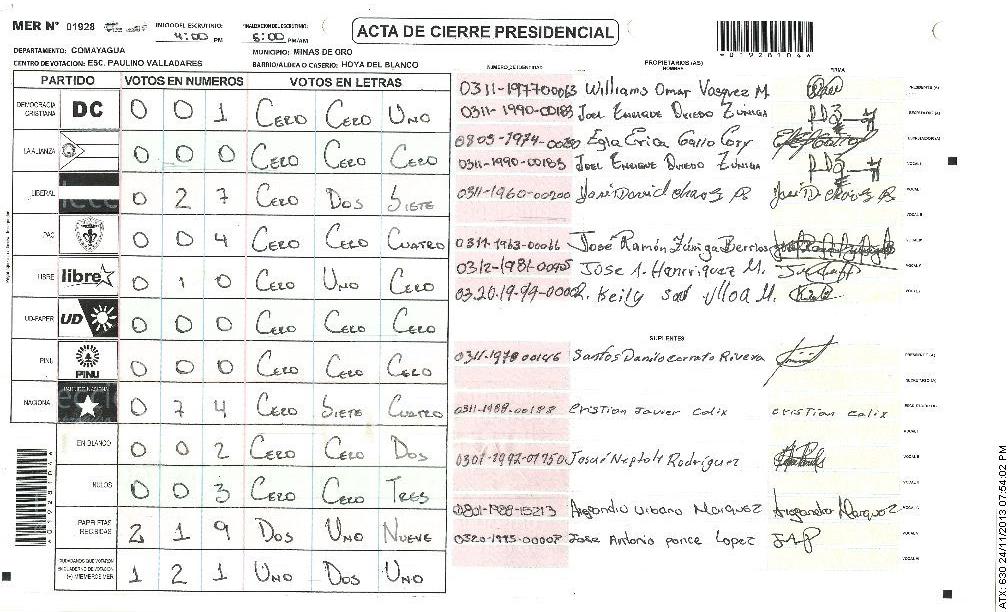 MER Nº 01928 INICIO DEL ESCRUTINIO: 4:00 PM FINALIZACION DEL ESCRUTINIO: 5:00 PM/AM
ACTA DE CIERRE PRESIDENCIAL
DEPARTAMENTO: COMAYAGUA MUNICIPIO: MINAS DE ORO
CENTRO DE VOTACION: ESC. PAULINO VALLADARES BARRIO/ALDEA O CASERIO: HOYA DEL BLANCO
PARTIDO VOTOS EN NUMEROS VOTOS EN LETRAS
DEMOCRACIA CRISTIANA DC 0 0 1 CERO CERO UNO
LA ALIANZA 0 0 0 CERO CERO CERO
LIBERAL 0 2 7 CERO DOS SIETE
PAC 0 0 4 CERO CERO CUATRO
LIBRE libre 0 1 0 CERO UNO CERO
UD-FAPER UD 0 0 0 CERO CERO CERO
PINU PINU 0 0 0 CERO CERO CERO
NACIONAL 0 7 4 CERO SIETE CUATRO
EN BLANCO 0 0 2 CERO CERO DOS
NULOS 0 0 3 CERO CERO TRES
PAPELETAS RECIBIDAS 2 1 9 DOS UNO NUEVE
CIUDADANOS QUE VOTARON EN CUADERNO DE VOTACION (+) MIEMBROS MER 1 2 1 UNO DOS UNO
PROPIETARIOS (AS)
NUMERO DE IDENTIDAD NOMBRE FIRMA
0311-197700063 Williams Omar Vasquez M. PRESIDENTE (A)
0311-1990-00183 JOEL ENRIQUE OVIEDO ZUNIGA SECRETARIO (A)
0805-1974- Egla Erica Gallo Cory ESCRUTADOR (A)
0311-1990-00183 JOEL ENRIQUE OVIEDO ZUNIGA VOCAL I
0311-1960-00200 José David Chavez B José D Chavez B VOCAL II
0311-1963-00066 José Ramón Zúniga Berrios
0312-1981- JOSE A. Hanrriquez M.
03.20.19-94-00002. Keily Sad Ulloa M.
SUPLENTES
0311-1978 00146 Santos Danilo Corrato Rivera PRESIDENTE (A)
SECRETARIO (A)
0311-1988-00188 Cristian Javier Calix cristian calix ESCRUTADOR (A)
VOCAL I
0301-1992-01750 Josué Neptali Rodríguez VOCAL II
0801-1988-15213 Alegandro Urbano Marquez Alegandro Marquez
0320-1995-00007 Jose Antonio ponce Lopez JAP
*01928104*
ATX: 630 24/11/2013 07:54:02 PM